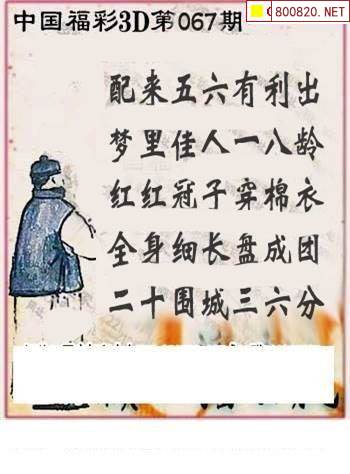 中国福彩3D第067期
800820.NET
配来五六有利出
梦里佳人一八龄
红红冠子穿棉衣
全身细长盘成团
二十围城三六分